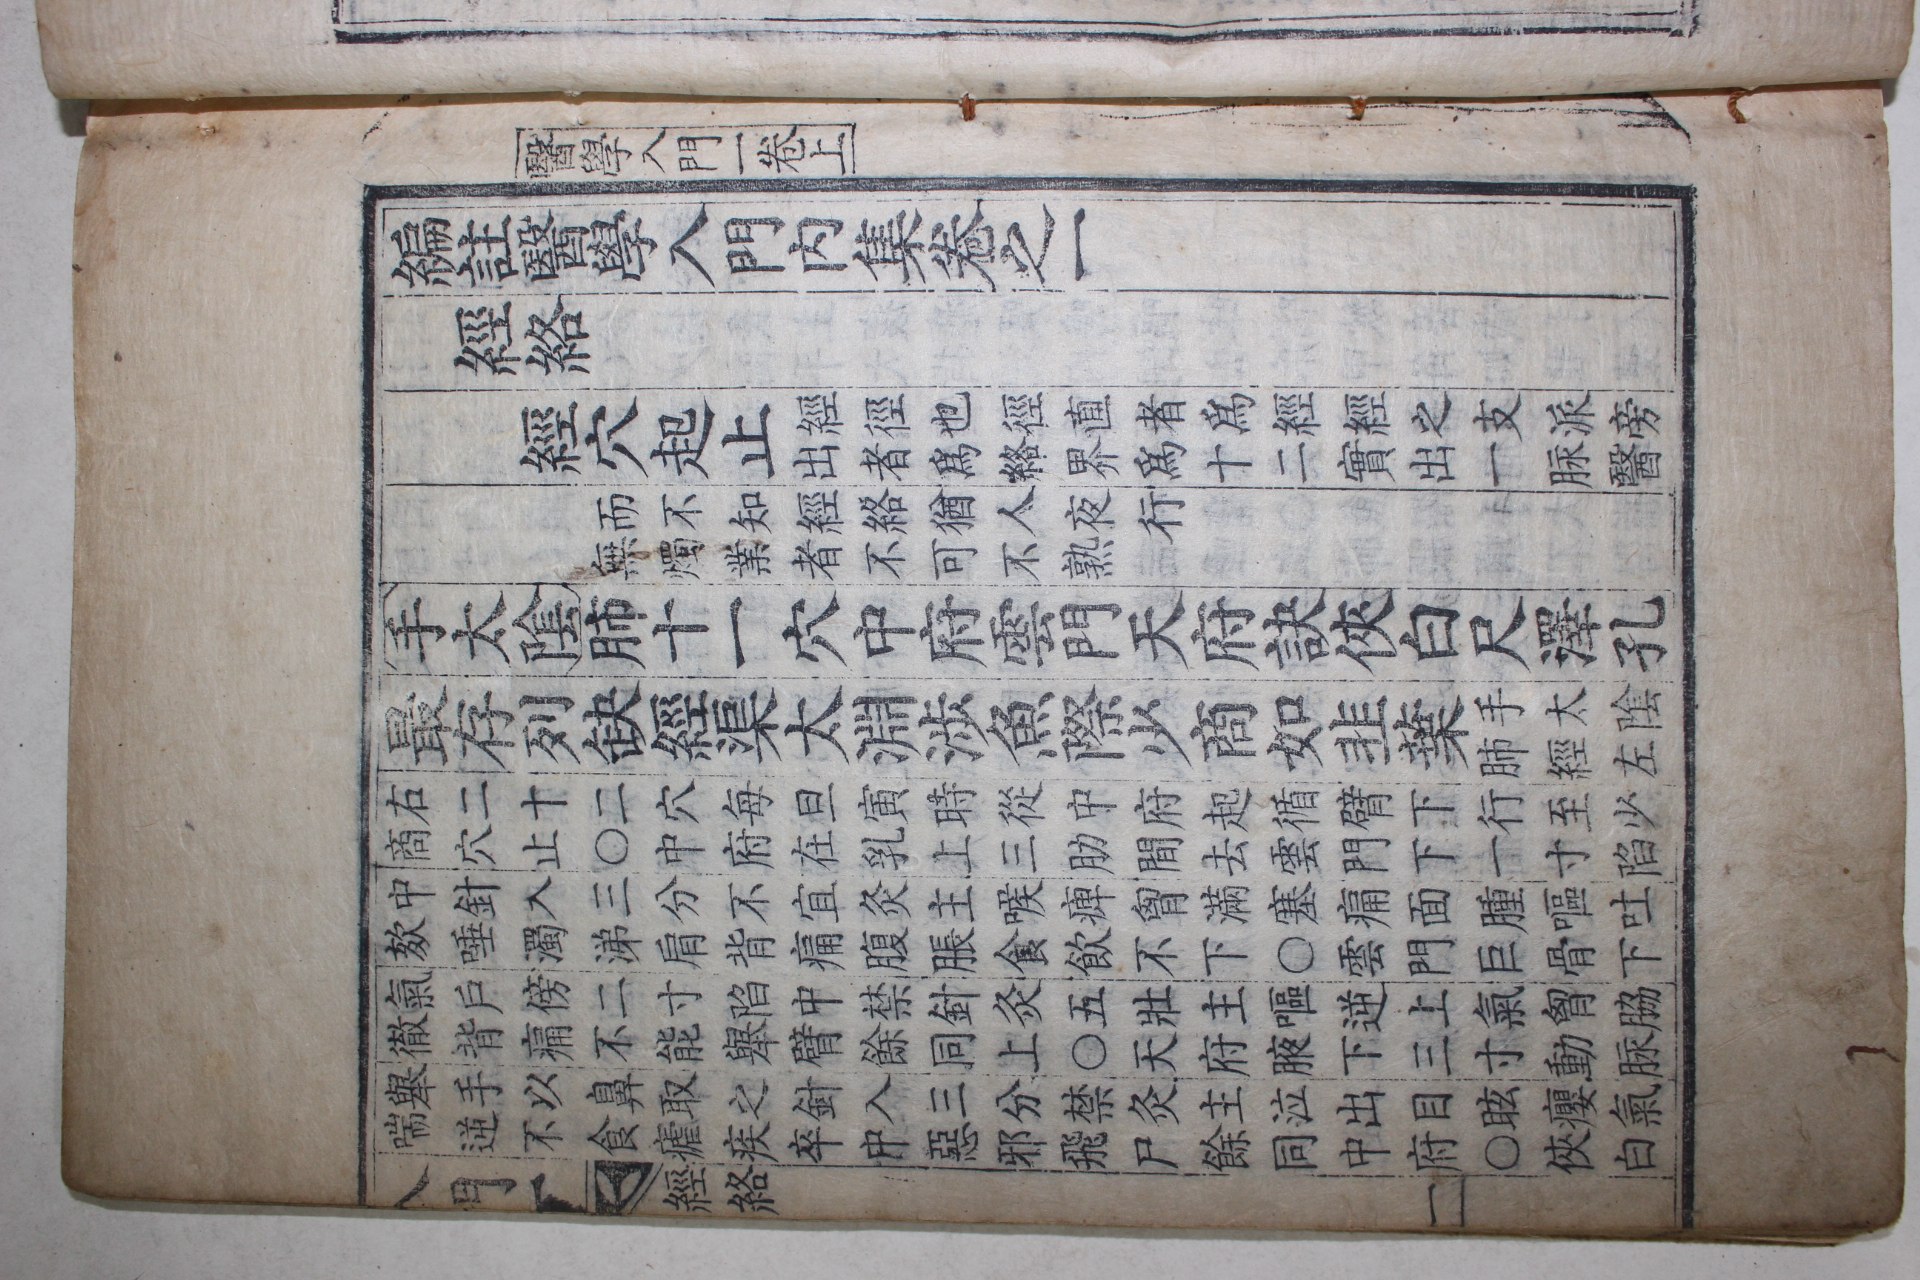 醫學入門一卷上
編註醫學入門內集卷之一
經絡
經穴起止
經徑也徑直者爲經經之支派旁
出者爲絡界爲十二實出一脉醫
而不知經絡猶人夜行
無燭業者不可不熟
手太陰肺十一穴中府雲門天府訣俠白尺澤孔
最存列缺經渠太淵涉魚際少商如韭葉
手太陰
肺經左
右二十二穴每旦寅時從中府起循臂下行至少
商穴止○中府在乳上三肋間去雲門下一寸陷
中針入三分不宜灸主喉痺胷滿塞痛面腫嘔吐
欬唾濁涕肩背痛腹脹食飮不下○雲門巨骨下
氣戶傍二寸陷中禁針灸五壯主嘔逆上氣胷脇
徹背痛不能擧臂餘同上○天府腋下三寸動脉
擧手以鼻取之針入三分禁灸主泣出目眩癭氣
喘逆不食瘧疾卒中惡邪飛尸餘同中府○俠白
入門一
經絡
一